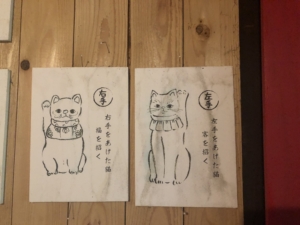 右手
右手をあげた猫
福を招く
左手
左手をあげた猫
客を招く